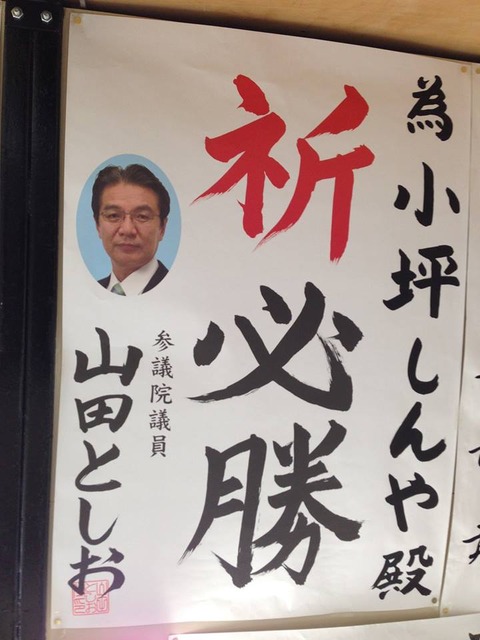 為小坪しんや殿
祈必勝
参議院議員
山田としお